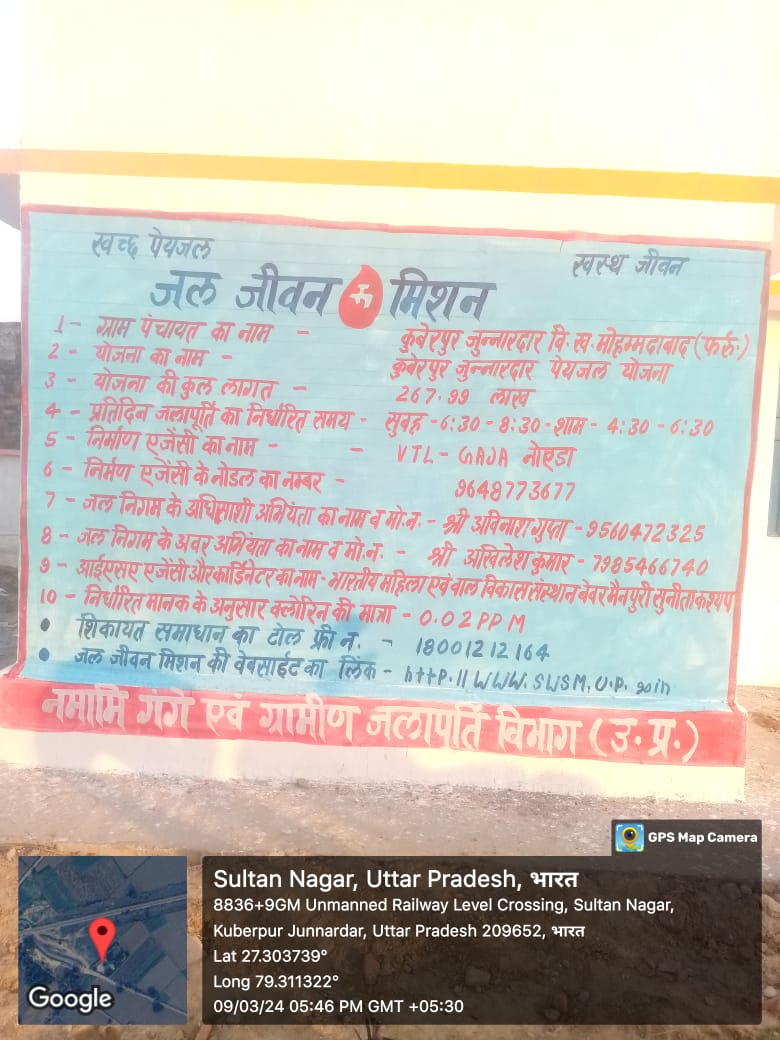 स्वच्छ पेयजल
स्वस्थ जीवन
जल जीवन मिशन
1- ग्राम पंचायत का नाम - कुबेरपुर जुन्नारदार वि. ख. मोहम्मदाबाद (फर्रु.)
2- योजना का नाम - कुबेरपुर जुन्नारदार पेयजल योजना
3- योजना की कुल लागत - 267.99 लाख
4- प्रतिदिन जलापूर्ति का निर्धारित समय - सुबह -6:30 - 8:30 - शाम - 4:30 - 6:30
5- निर्माण एजेंसी का नाम - - VTL - GAJA नोएडा
6- निर्मण एजेंसी के नोडल का नम्बर - 9648773677
7- जल निगम के अधिसाशी अभियंता का नाम व मो.न. - श्री अविनाश गुप्ता - 9560472325
8- जल निगम के अवर अभियंता का नाम व मो.न. - श्री अखिलेश कुमार - 7985466740
9- आईएसए एजेंसी और कार्डिनेटर का नाम - भारतीय महिला एवं बाल विकास संस्थान बेवर मैनपुरी सुनीता कश्यप
10- निर्धारित मानक के अनुसार क्लोरिन की मात्रा - 0.02 PPM
• शिकायत समाधान का टोल फ्री न. - 18001212164
• जल जीवन मिशन की वेबसाईट का लिंक - http.// WWW. SWSM. U.P. goin
नमामि गंगे एवं ग्रामीण जलापूर्ति विभाग (उ.प्र.)
GPS Map Camera
Google
Sultan Nagar, Uttar Pradesh, भारत
8836+9GM Unmanned Railway Level Crossing, Sultan Nagar,
Kuberpur Junnardar, Uttar Pradesh 209652, भारत
Lat 27.303739°
Long 79.311322°
09/03/24 05:46 PM GMT +05:30